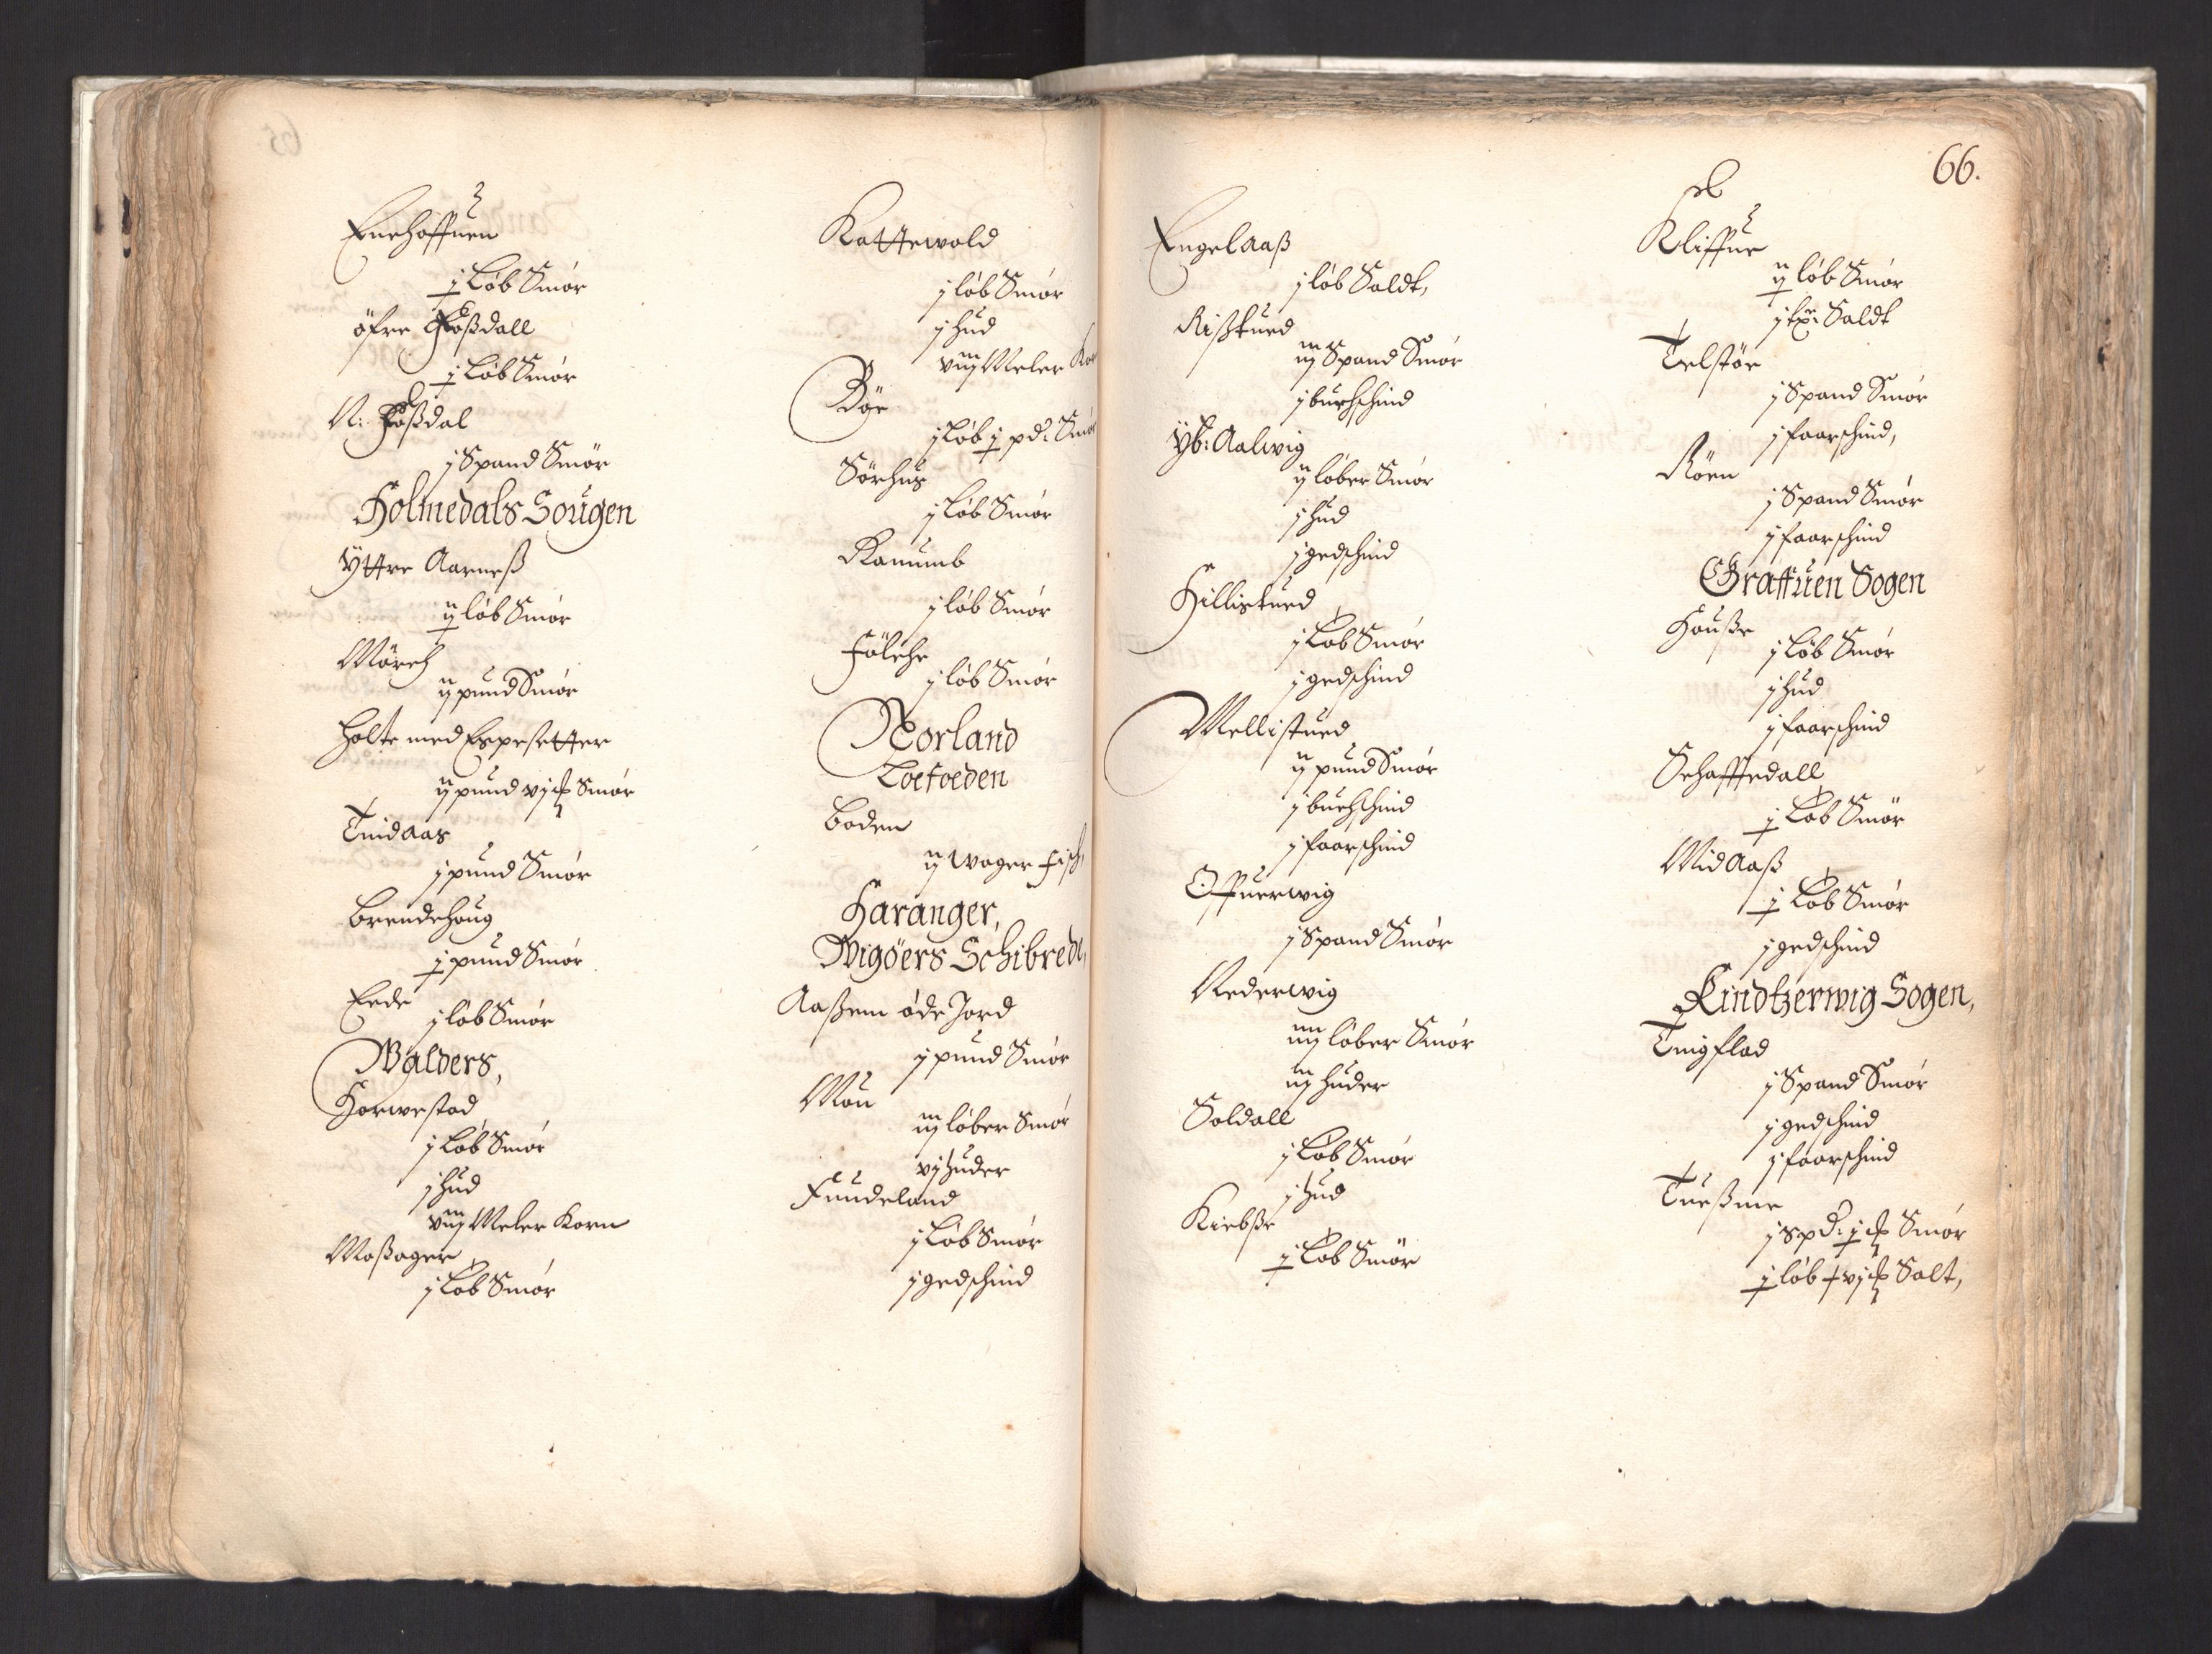 Enehoffuen
j Løb Smør
öfre Foßdall
j Løb Smør
N: Foßdal
j Spand Smör
Holmedals Sougen
Yttre Aarneß
ij løb Smør
Mörch
ij pund Smør
Holte med Espesetter
ij pund vj Smør
Tindaas
j pund Smør
Brendehoug
j pund Smør
Eede
j løb Smør
Walders,
Horwestad
j Løb Smør
j Hud
viij Meler Korn
Moßager
j Løb Smør
Kattewold
j løb Smør
j Hud
viij Meler Kor
Böe
j Løb j pd: Smør
Sörhus
j Løb Smør
Kanumb
j løb Smør
Fölche
j løb Smør
Norland
Loefoeden
Boden
ij Wager Fisch,
Haranger,
Wigöers Schibrede,
Aaßem øde Jord
j pund Smør
Mou
iij løber Smør
vj Huder
Funndeland
j Løb Smør
j gedschind
66.
Engelaaß
j løb Saldt,
Rißtued
iij Spand Smør
j buchschind
Yt: Aalwig
ij løber Smør
j Hud
j gedschind
Hillistued
j Løb Smør
j gedschind
Mellistued
ij pund Smør
j buchschind
j faarschind
Offuerwig
j Spand Smør
Nederwig
iiij løber Smør
iij Huder
Soldall
j Løb Smør
j Hud
Kiebße
j Løb Smör
Kliffue
ij løb Smør
j tø: Saldt
Telstöe
j Spand Smør
j faarschind,
Röen
j Spand Smør
j faarschind
Graffuen Sogen
Houße
j Løb Smør
j Hud
j faarschind
Schafftedall
j Løb Smör
Midaaß
j Løb Smør
j gedschind
Kindtzerwig Sogen,
Tingflad
j Spand Smør
j gedschind
j faarschind
Tueßme
j Spd: j Smør
j løb + vj Salt,